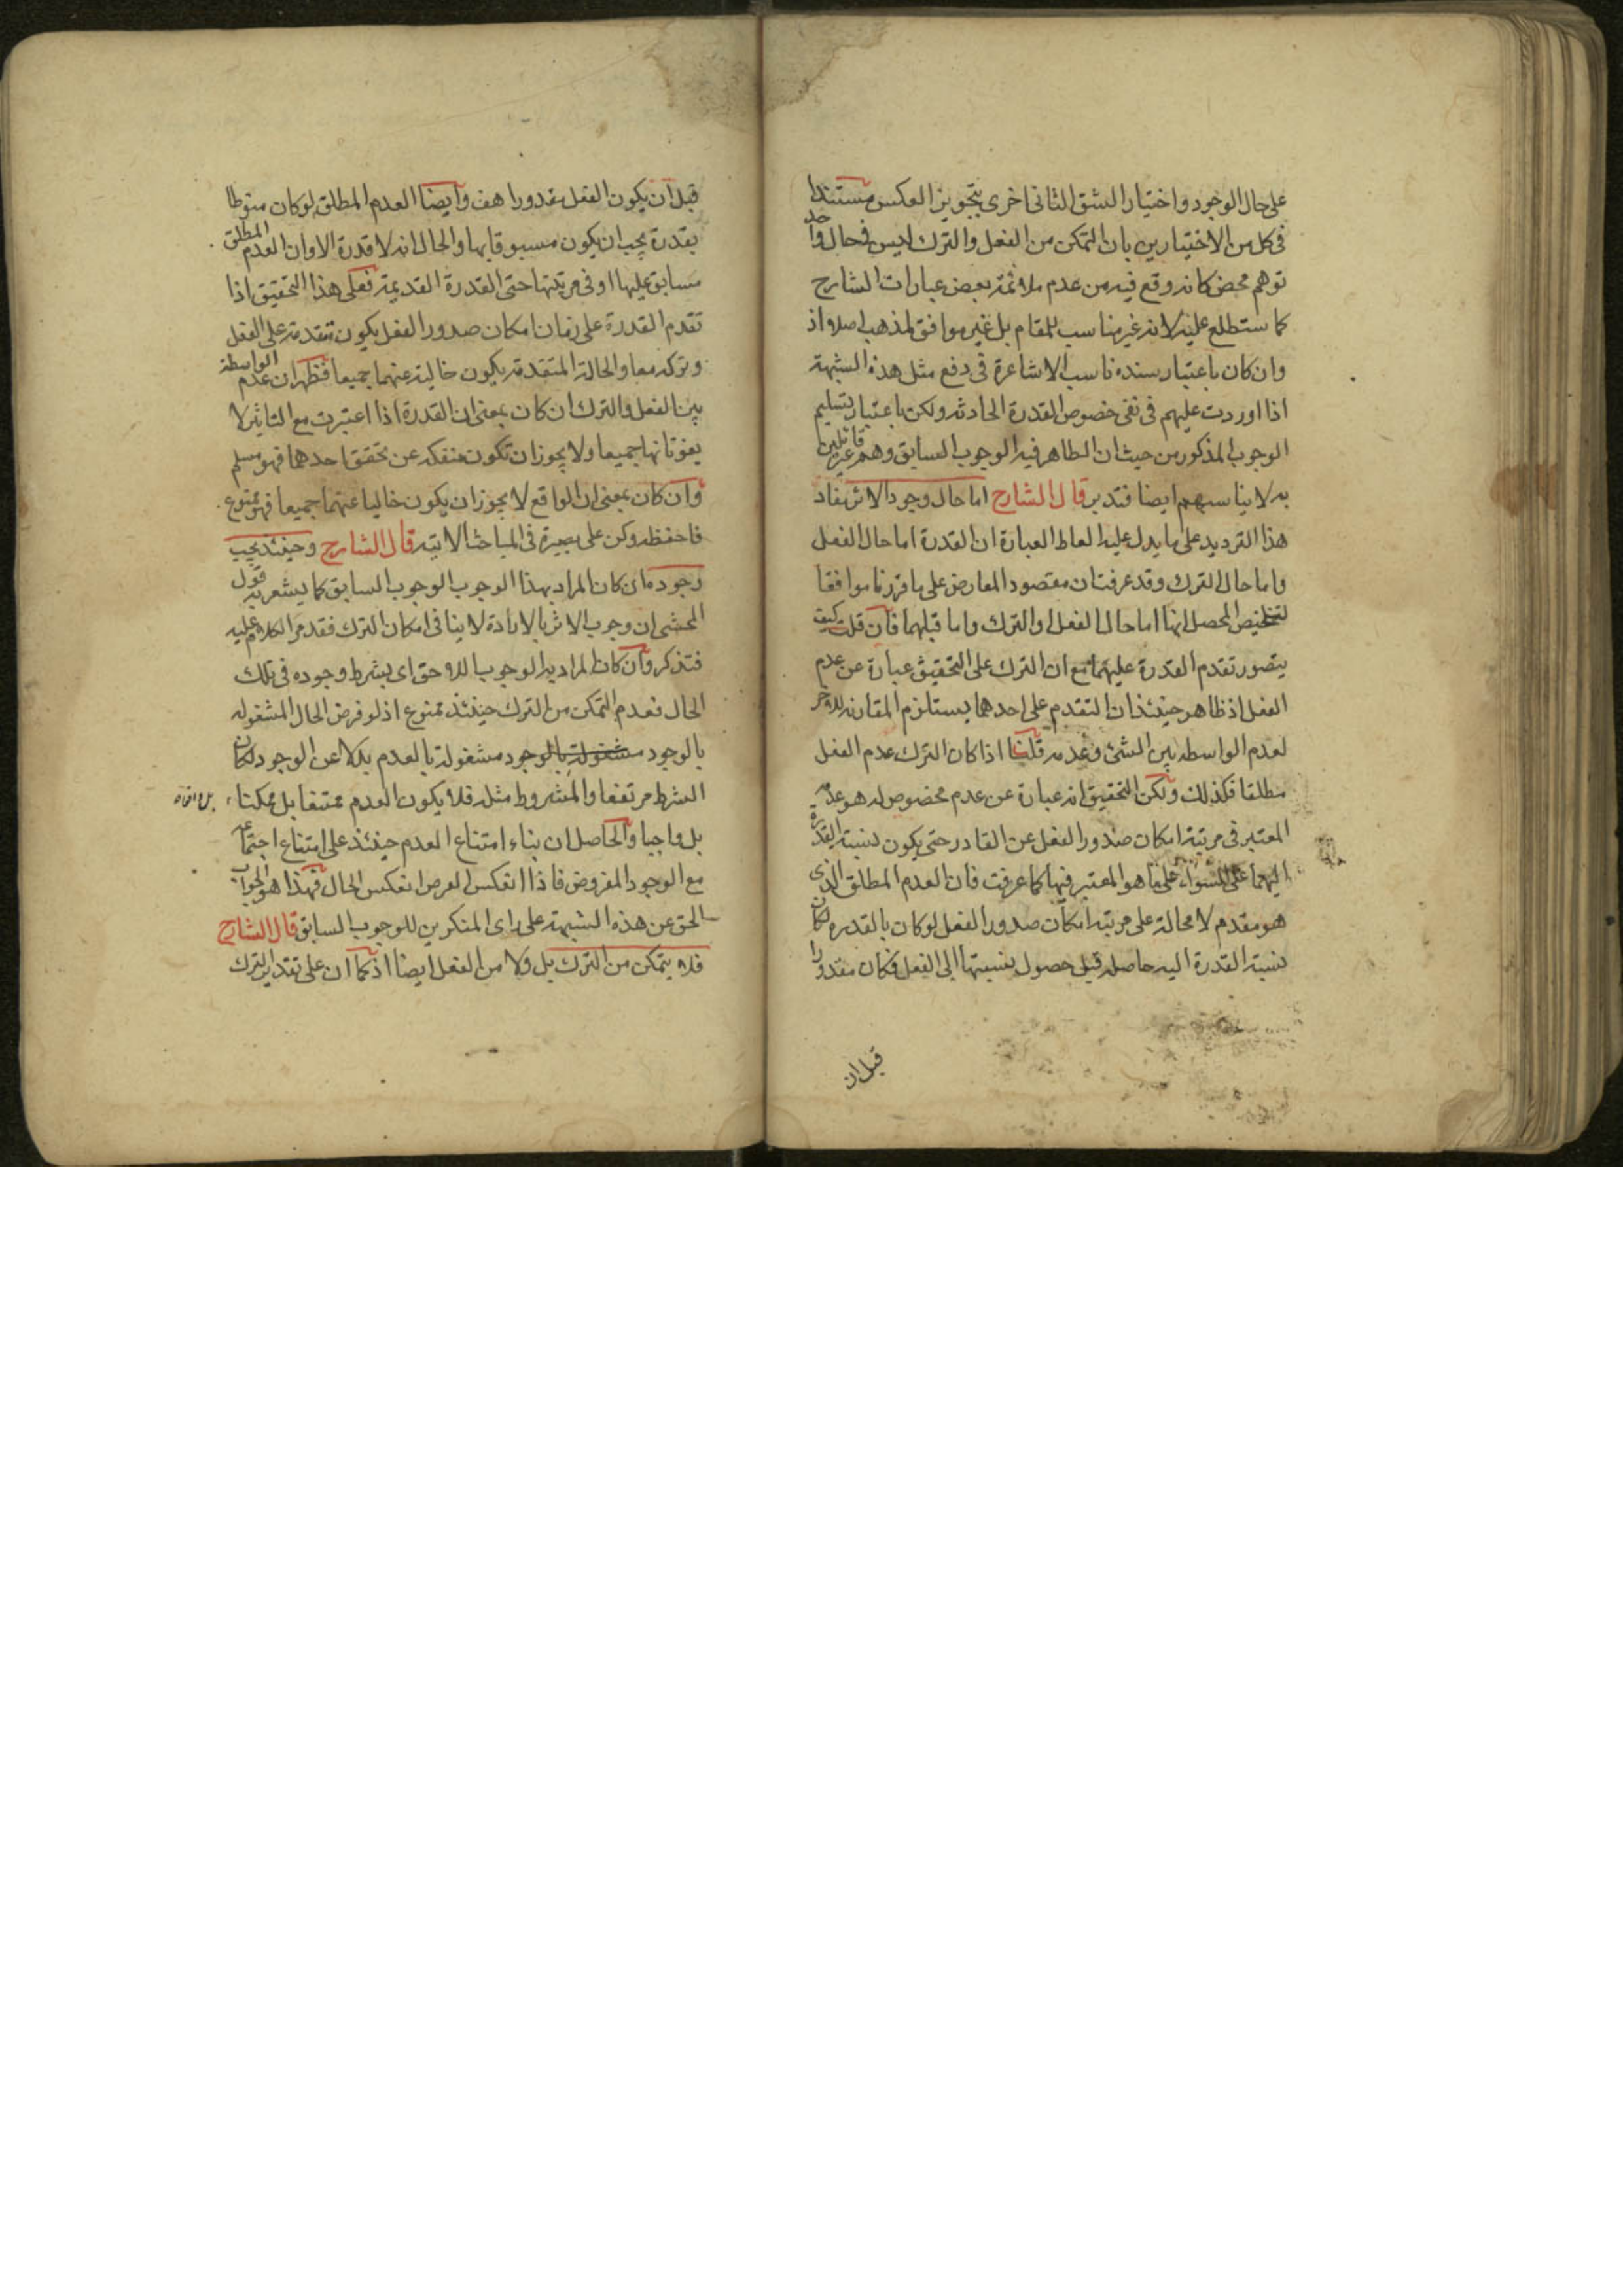 على حال الوجود واختيار الشق الثانى اخرى بتجويز العكس مستندا
فى كل من الاختيارين بان التمكن من الفعل والترك ليس فى حال واحد
توهم محض كانه وقع فيه من عدم ملائمة بعض عبارات الشارح
كما ستطلع عليه لانه غير مناسب للمقام بل غير موافق لمذهب اصلا اذ
وان كان باعتبار سنده ناسب الاشاعرة فى دفع مثل هذه الشبهة
اذا اوردت عليهم فى نفى خصوص القدرة الحادثه ولكن باعتبار تسليم
الوجوب المذكور من حيث ان الظاهر فيه الوجوب السابق وهم غير قائلين
به لا يناسبهم ايضا فتدبر قال الشارح اما حال وجود الاثر مفاد
هذا الترديد على ما يدل عليه الفاظ العبارة ان القدرة اما حال الفعل
واما حال الترك وقد عرفت ان مقصود المعارض على ما قررنا موافقا
لتلخيص المحصل انها اما حال الفعل او الترك واما قبلهما فان قلت كيف
يتصور تقدم القدرة عليهما مع ان الترك على التحقيق عبارة عن عدم
الفعل اذ ظاهر حينئذ ان التقدم على احدهما يستلزم المقارنه للاخر
لعدم الواسطه بين الشئ وعدمه قلنا اذا كان الترك عدم الفعل
مطلقا فكذلك ولكن التحقيق انه عبارة عن عدم مخصوص له هو عدمه
المعتبر فى مرتبة امكان صدور الفعل عن القادر حتى يكون نسبة القدرة
اليهما على السواء على ما هو المعتبر فيها كما عرفت فان العدم المطلق الذى
هو مقدم لا محالة على مرتبة امكان صدور الفعل لو كان بالقدره لكان
نسبة القدرة اليه حاصله قبل حصول نسبتها الى الفعل فكان مقدورا
قبل ان
قبل ان يكون الفعل مقدورا هف وايضا العدم المطلق لو كان منوطا
بقدرة يجب ان يكون مسبوقا بها والحال انه لا قدرة الا وان العدم المطلق
سابق عليها او فى مرتبتها حتى القدرة القديمة فعلى هذا التحقيق اذا
تقدم القدرة على زمان امكان صدور الفعل يكون متقدمة على الفعل
وتركه معا والحالة المتقدمة يكون خالية عنهما جميعا فظهر ان عدم الواسطة
بين الفعل والترك ان كان بمعنى ان القدرة اذا اعتبرت مع التاثير لا
يفوتانها جميعا ولا يجوز ان تكون منفكه عن تحقق احدهما فهو مسلم
وان كان بمعنى ان الواقع لا يجوز ان يكون خاليا عنهما جميعا فهو ممنوع
فاحفظه وكن على بصيرة فى المباحث الاتيه قال الشارح وحينئذ يجب
وجوده ان كان المراد بهذا الوجوب الوجوب السابق كما يشعر به قول
المحشى ان وجوب الاثر بالارادة لا ينافى امكان الترك فقد مر الكلام عليه
فتذكر وان كان المراد به الوجوب اللاحق اى بشرط وجوده فى تلك
الحال فعدم التمكن من الترك حينئذ ممنوع اذ لو فرض الحال المشغوله
بالوجود مشغولة بالوجود مشغولة بالعدم بدلا عن الوجود لكان
الشرط مرتفعا والمشروط مثله فلا يكون العدم ممتنعا بل ممكنا
بل واجبا والحاصل ان بناء امتناع العدم حينئذ على امتناع اجتماعه
مع الوجود المفروض فاذا انعكس الفرض انعكس الحال فهذا هو الجواب
الحق عن هذه الشبهة على راى المنكرين للوجوب السابق قال الشارح
فلا يتمكن من الترك بل ولا من الفعل ايضا اذ كما ان على تقدير الترك